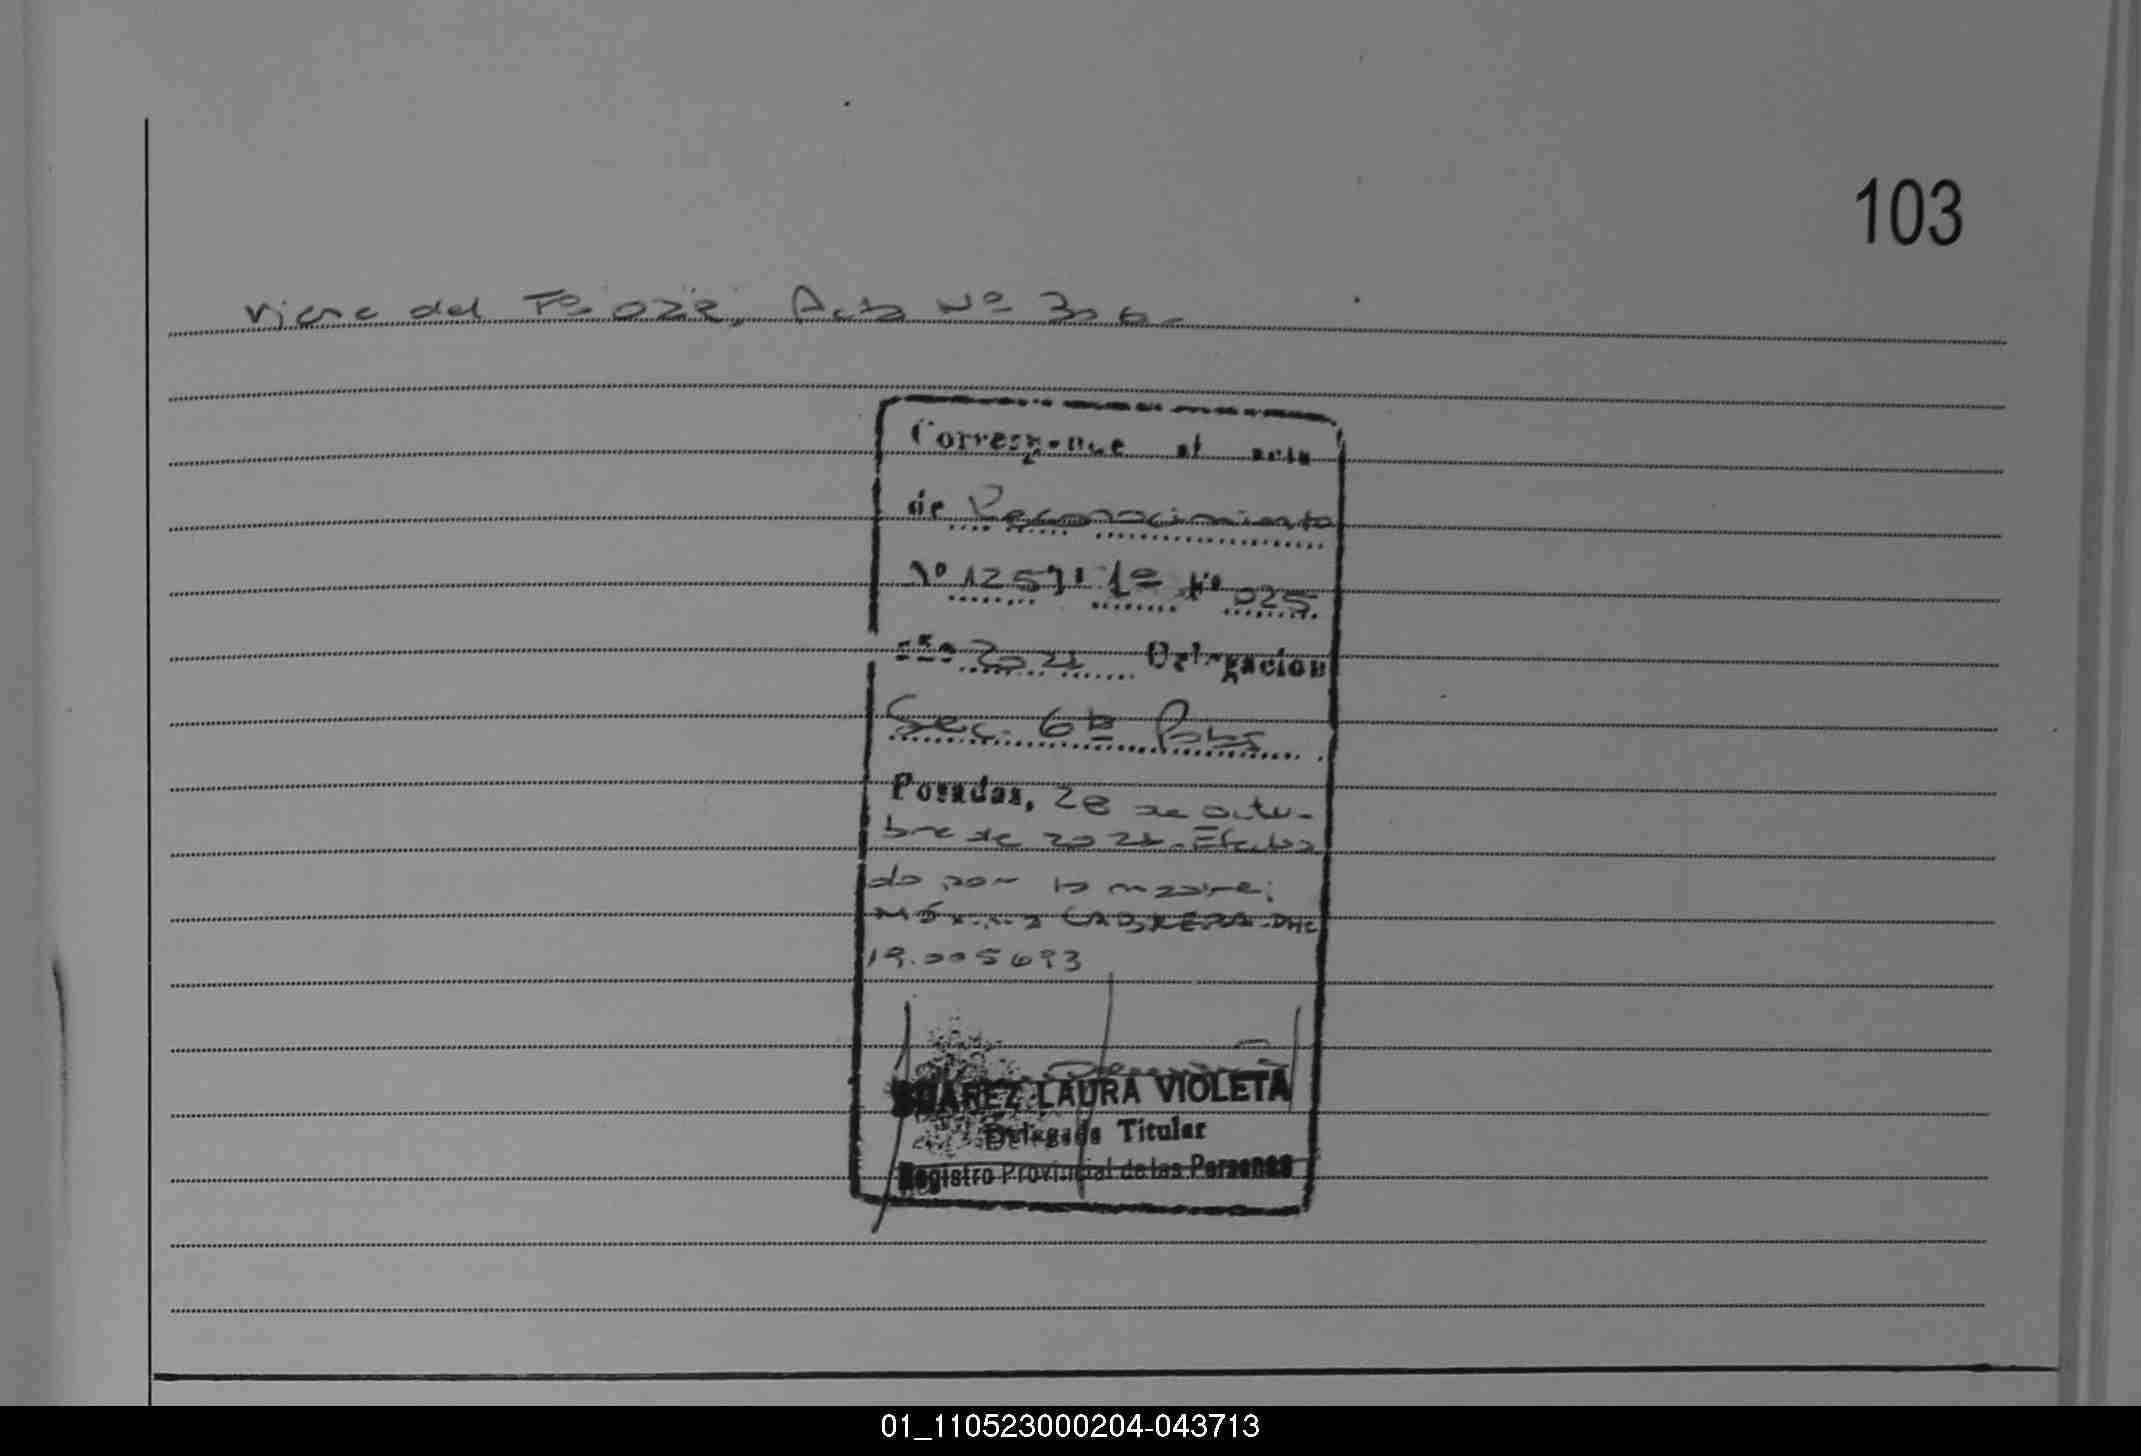 103
Viene del Fº 022, Acta Nº 306.-
Corresponde al acta
de Reconocimiento
Nº 1257 Tº 1º Fº 025
año 2021 Delegación
Sec. 6ta Pdas
Posadas, 28 de octu-
bre de 2021. Efectua
do por la madre:
CABRERA
19.005693
SUAREZ LAURA VIOLETA
Delegada Titular
Registro Provincial de las Personas
01_110523000204-043713